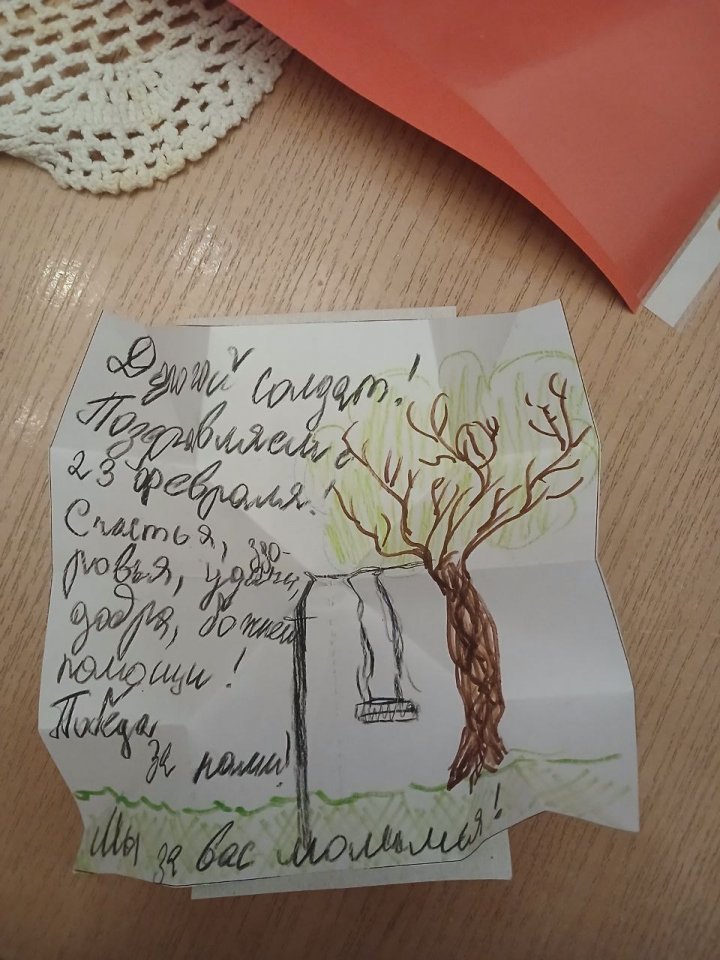 Дрогой солдат!
Поздравляем с
23 февраля!
Счастья, здо-
ровья, удачи,
добра, божией
помощи!
Победа
за нами!
Мы за вас молимся!